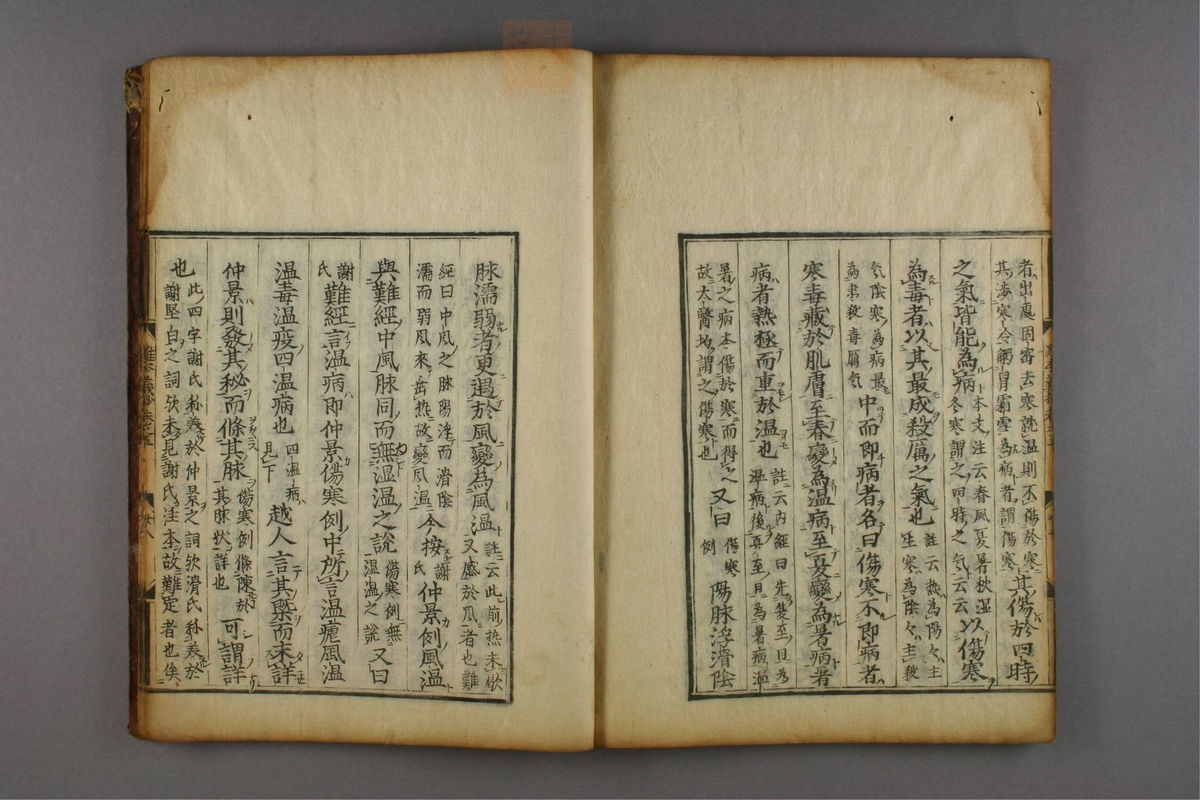 者出處固密去寒就温則不傷於寒
其渉寒冷觸冒霜雪為病者謂傷寒其傷於四時
之氣皆能為病
本文注云春風夏暑秋湿
冬寒謂之四時之氣云云以傷寒
為毒者以其最成殺厲之氣也
註云熱為陽々主
生寒為陰々主殺
気陰寒為病最
為肅殺毒厲気中而即病者名曰傷寒不即病者
寒毒蔵於肌膚至春變為温病至夏變為暑病暑
病者熱極而重於温也
註云内經曰先夏至日為
温病後夏至日為暑病温
暑之病本傷於寒而得之
故太醫均謂之傷寒也
又曰
傷寒
例
陽脉浮滑陰
脉濡弱者更遇於風變為風温
註云此前熱未歇
又感於風者也難
經曰中風之脉陽浮而滑陰
濡而弱風來乗熱故變風温
今按
謝
氏
仲景例風温
與難經中風脉同而無湿温之説
傷寒例無
湿温之説
又曰
謝
氏
難經言温病即仲景傷寒例中所言温瘧風温
温毒温疫四温病也
四温病
見下
越人言其槩而未詳
仲景則發其秘而條其脉
傷寒例條陳於
其脉状詳也
可謂詳
也
此四字謝氏称羨於仲景之詞欤滑氏称羨於
謝堅白之詞欤未見謝氏注本故難定者也俟